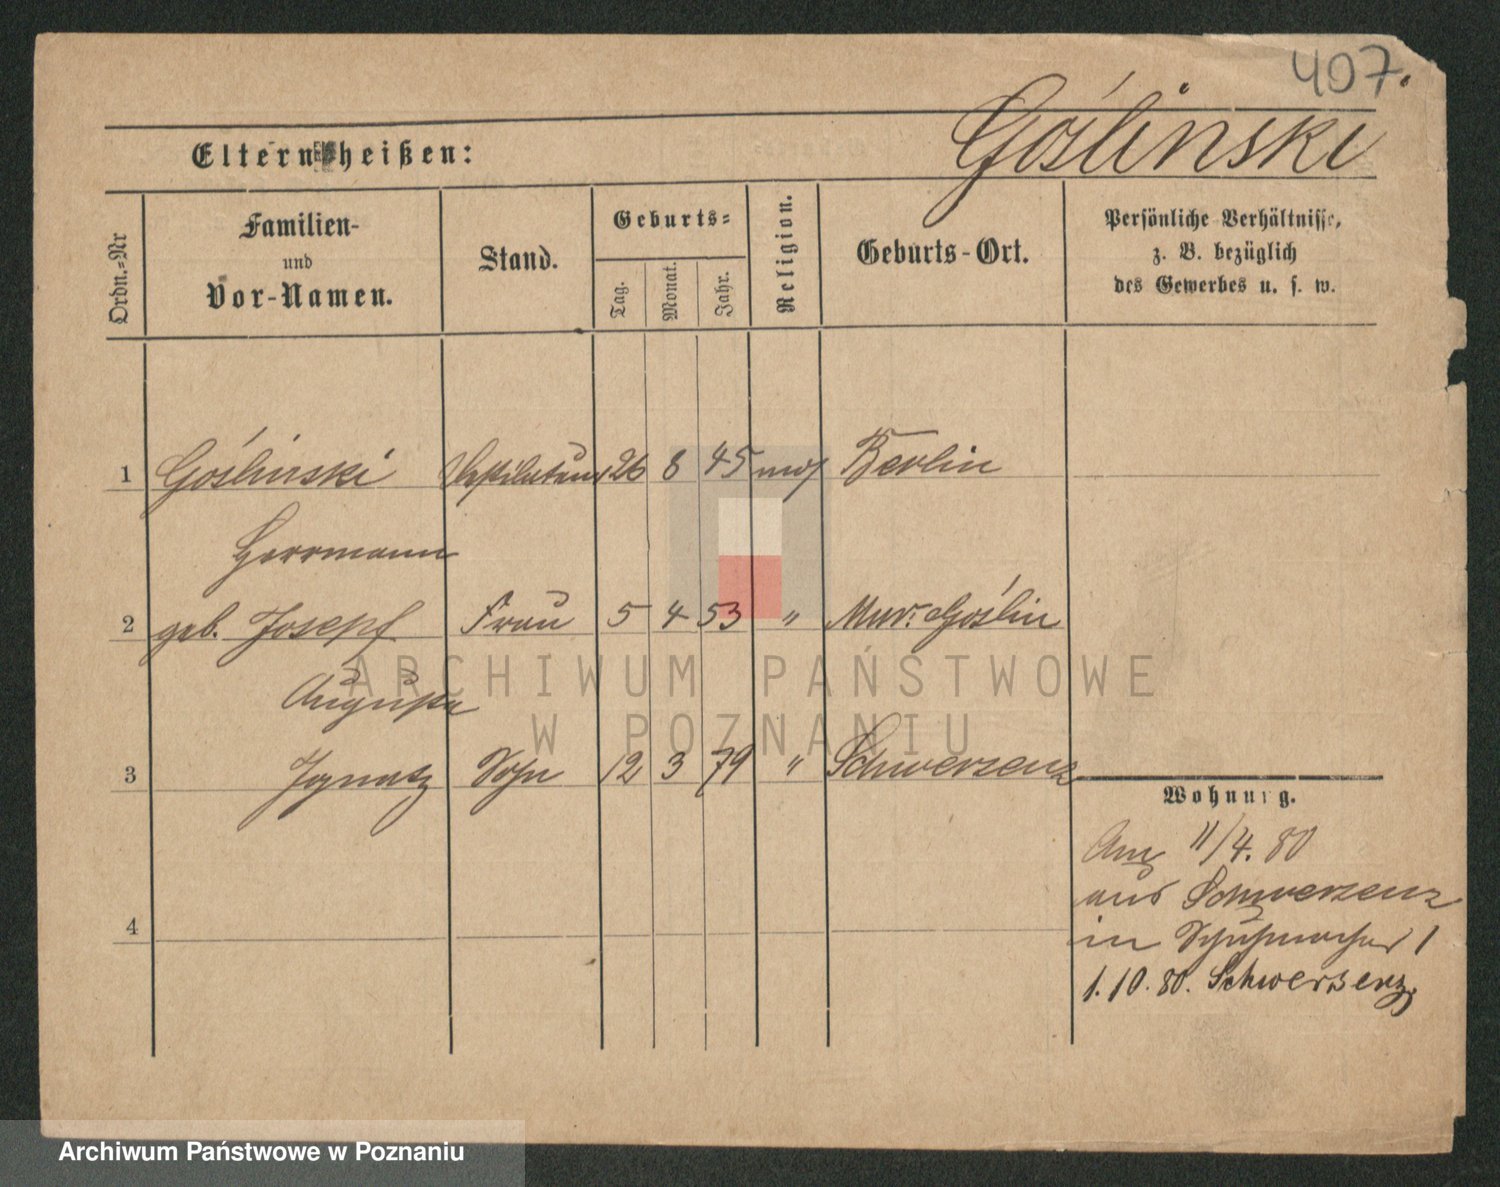 407.
Gośliński
Eltern heißen:
Ordn.-Nr
Familien-
und
Vor-Namen.
Stand.
Geburts-
Tag.
Monat.
Jahr.
Religion.
Geburts-Ort.
Persönliche Verhältnisse,
z. B. bezüglich
des Gewerbes u. s. w.
1 Gośliński 26 8 45 mos Berlin
Herrmann
2 geb. Joseph Frau 5 4 53 " Mur. Goślin
Auguste
3 Ignatz Sohn 12 3 79 " Schwersenz
4
Wohnung.
Am 11/4. 80
aus Schwersenz
in 1
1.10.80. Schwersenz
ARCHIWUM PAŃSTWOWE
W POZNANIU
Archiwum Państwowe w Poznaniu